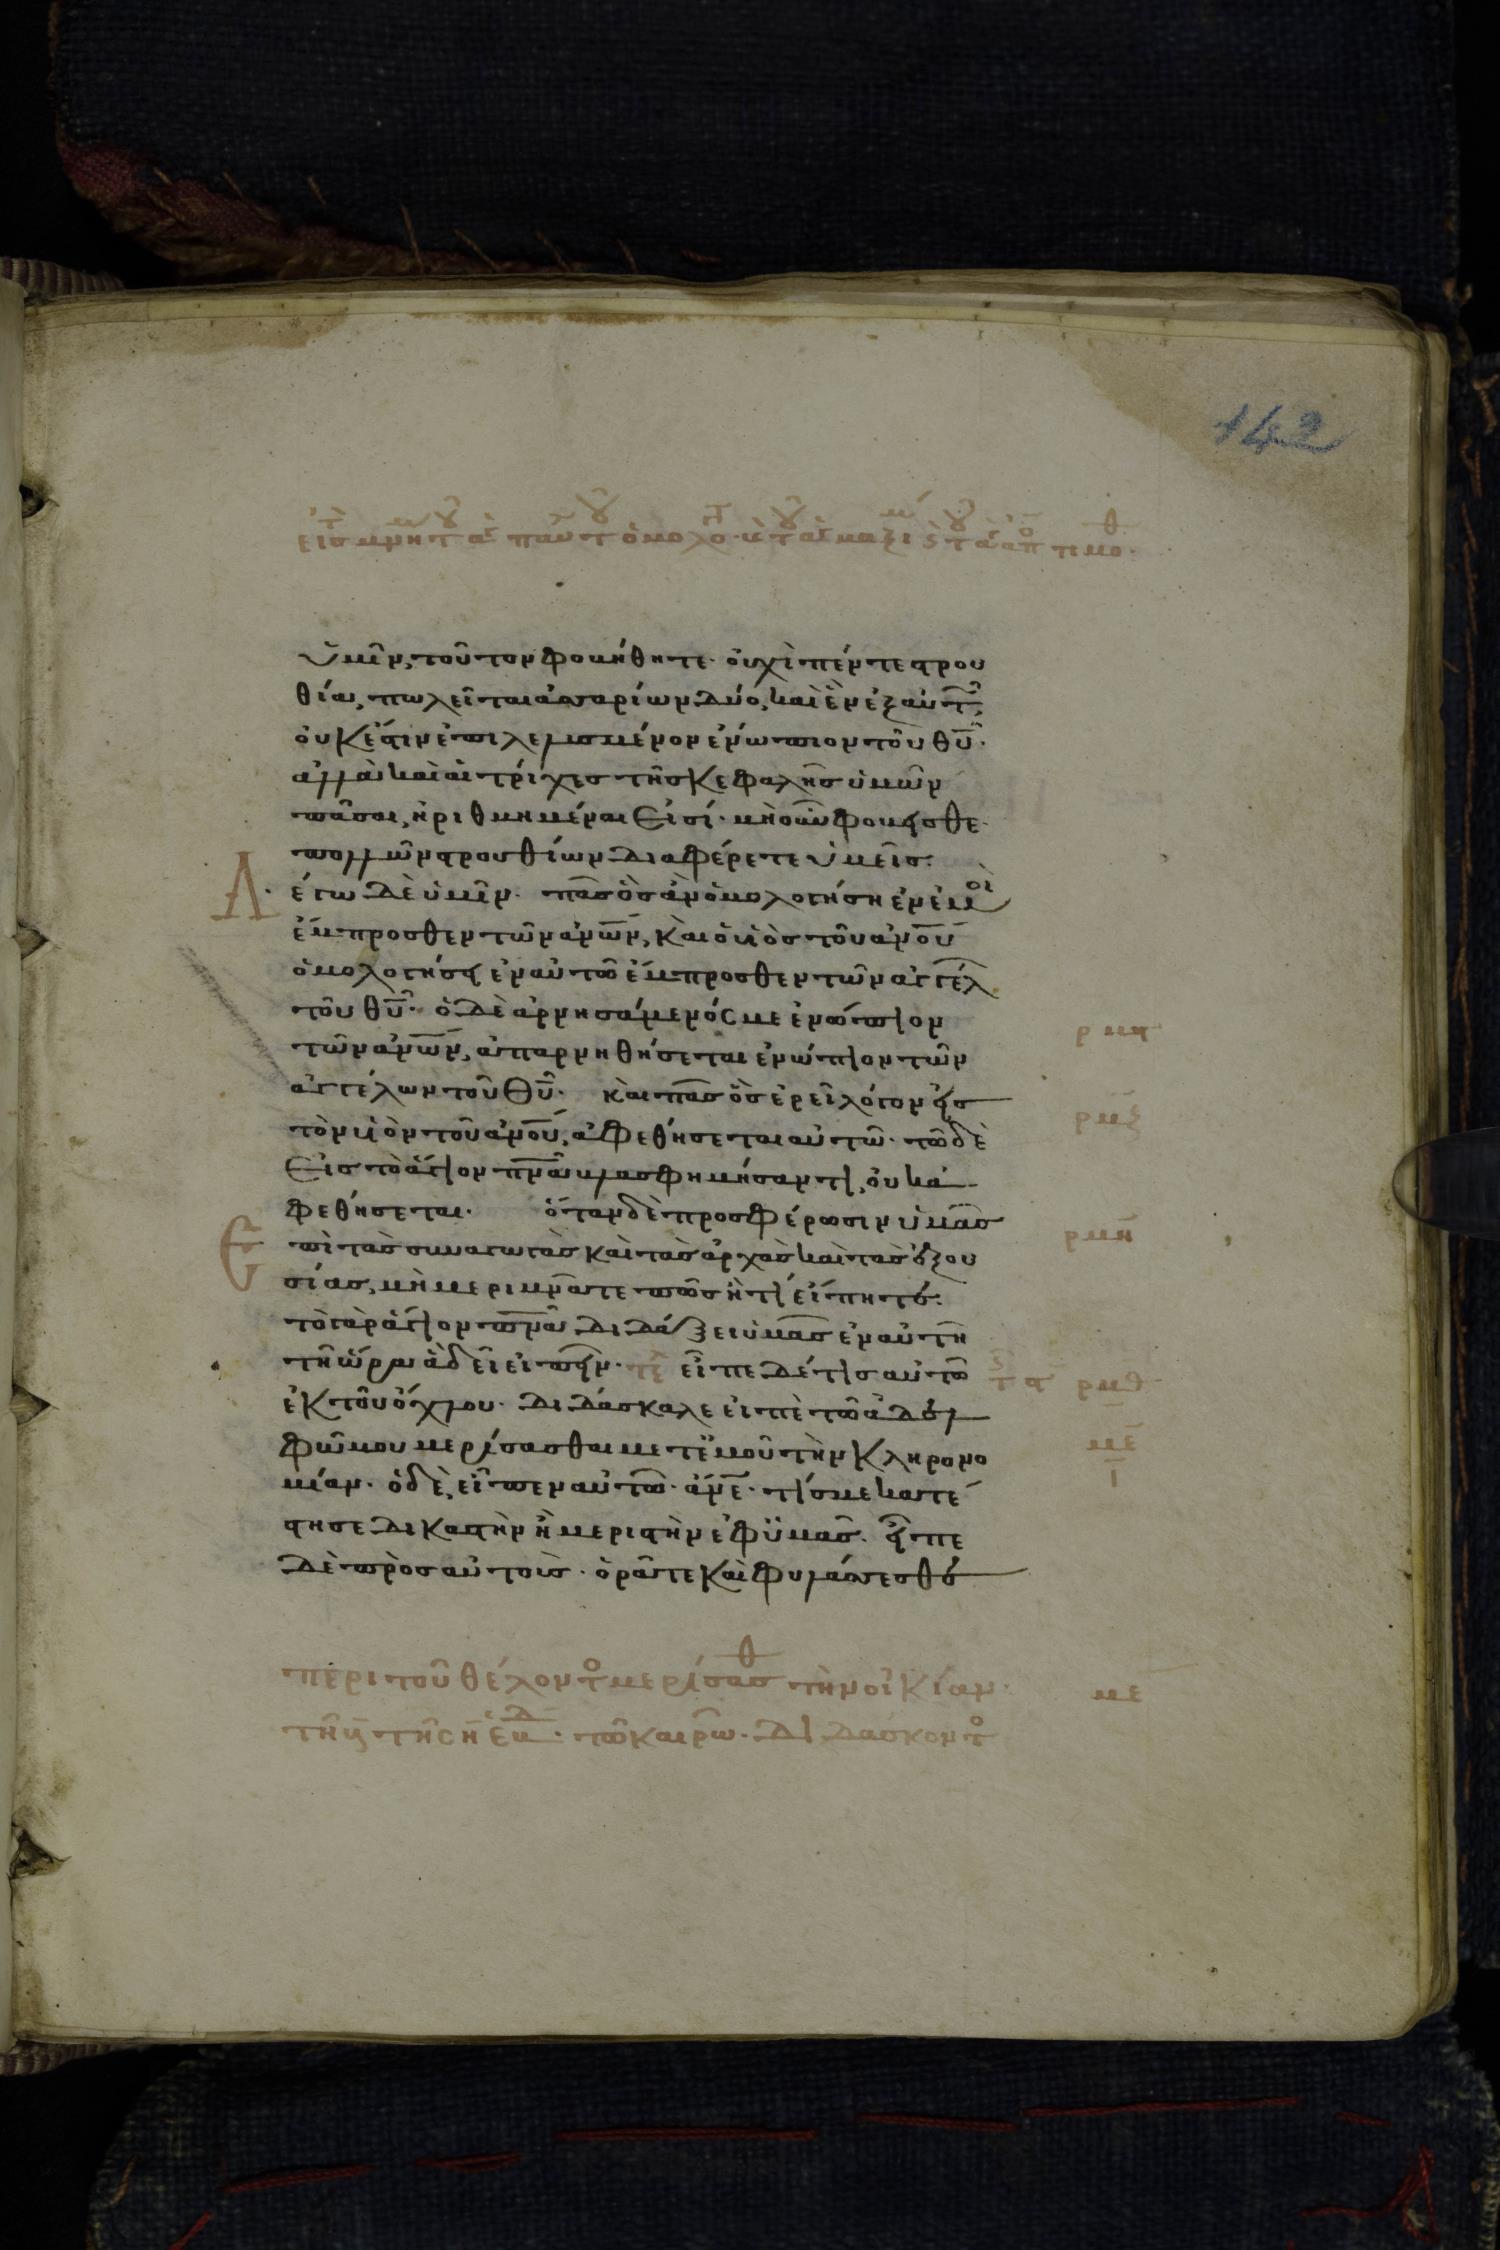 142
ὑμῖν, τοῦτον φοβήθητε· οὐχὶ πέντε στρου
θία, πωλεῖται ἀσσαρίων δύο, καὶ ἓν ἐξ αὐτῶν
οὐκ ἔστιν ἐπιλελησμένον ἐνώπιον τοῦ θῦ·
ἀλλὰ καὶ αἱ τρίχες τῆς κεφαλῆς ὑμῶν
πᾶσαι, ἠριθμημέναι εἰσί· μὴ οὖν φοβεῖσθε·
πολλῶν στρουθίων διαφέρετε ὑμεῖς:
Λέγω δὲ ὑμῖν· πᾶς ὃς ἂν ὁμολογήση ἐν ἐμοὶ
ἔμπροσθεν τῶν ἀνῶν, καὶ ὁ υἱὸς τοῦ ἀνοῦ
ὁμολογήσει ἐν αὐτῶ ἔμπροσθεν τῶν ἀγγέλ
τοῦ θῦ· ὁ δὲ ἀρνησάμενός με ἐνώπιον
τῶν ἀνῶν, ἀπαρνηθήσεται ἐνώπιον τῶν
ἀγγέλων τοῦ θῦ· καὶ πᾶς ὃς ἐρεῖ λόγον εἰς
τὸν υἱὸν τοῦ ἀνοῦ, ἀφεθήσεται αὐτῶ· τῶ δὲ
εἰς τὸ ἅγιον πνᾶ βλασφημήσαντι, οὐκ ἀ
φεθήσεται· ὅταν δὲ προσφέρωσιν ὑμᾶς
Ἐπὶ τὰς συναγωγὰς καὶ τὰς ἀρχὰς καὶ τὰς ἐξου
σίας, μὴ μεριμνᾶτε πῶς ἢ τί εἴπητε:
τὸ γὰρ ἅγιον πνᾶ διδάξει ὑμᾶς ἐν αὐτῆ
τῆ ὥρα ἃ δεῖ εἰπεῖν· εἶπε δέ τις αὐτῶ
ἐκ τοῦ ὄχλου· διδάσκαλε εἰπὲ τῶ ἀδελ
φῶ μου μερίσασθαι μετ' ἐμοῦ τὴν κληρονο
μίαν· ὁ δὲ, εἶπεν αὐτῶ· ἄνε· τίς με κατέ
στησε δικαστὴν ἢ μεριστὴν ἐφ' ὑμᾶς· εἶπε
δὲ πρὸς αὐτοὺς· ὁρᾶτε καὶ φυλάσσεσθε
ρμξ
ρμη
ρμθ
με
ι
περὶ τοῦ θέλοντο μερίσασθ τὴν οἰκίαν·
με